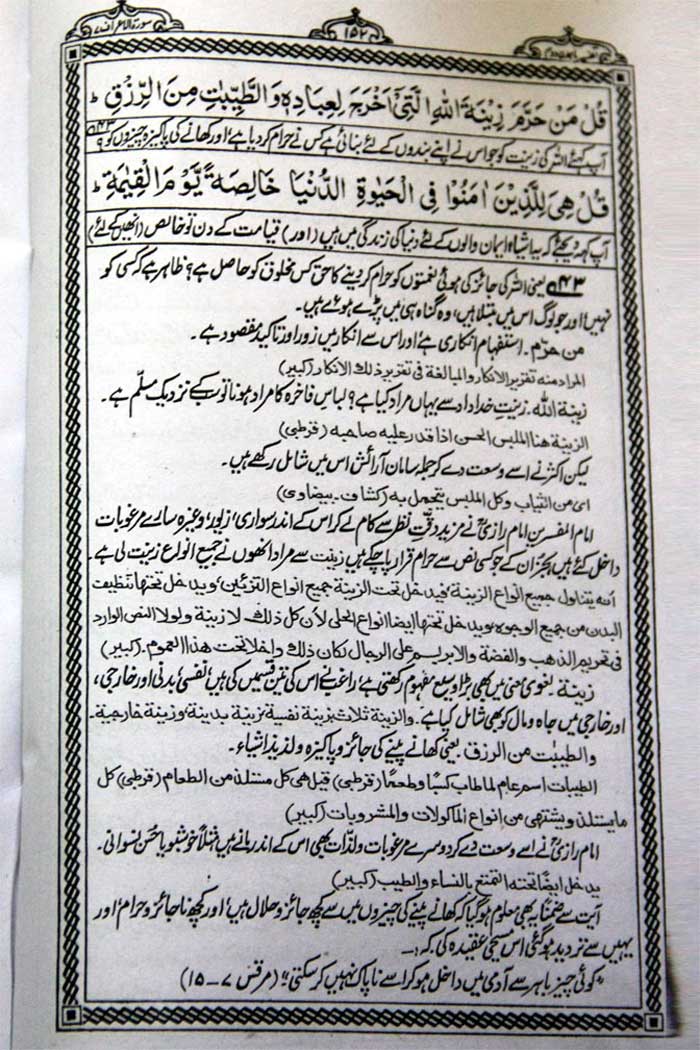 سورۃ الاعراف ۷
۱۵۲
قُلْ مَنْ حَرَّمَ زِينَةَ اللهِ الَّتِيْٓ اَخْرَجَ لِعِبَادِهٖ وَالطَّيِّبٰتِ مِنَ الرِّزْقِ ؕ
آپ کہئے اللہ کی زینت کو جو اس نے اپنے بندوں کے لئے بنائی ہے کس نے حرام کر دیا ہے، اور کھانے کی پاکیزہ چیزوں کو
قُلْ هِىَ لِلَّذِيْنَ اٰمَنُوْا فِى الْحَيٰوةِ الدُّنْيَا خَالِصَةً يَّوْمَ الْقِيٰمَةِ ؕ
آپ کہہ دیجئے کہ یہ اشیاء ایمان والوں کے لئے دنیا کی زندگی میں ہیں (اور) قیامت کے دن تو خالص (انھیں کے لئے)
۴۳ یعنی اللہ کی جائز کی ہوئی نعمتوں کو حرام کر دینے کا حق کس مخلوق کو حاصل ہے؟ ظاہر ہے کہ کسی کو
نہیں! اور جو لوگ اس میں مبتلا ہیں، وہ گناہ ہی میں پڑے ہوئے ہیں۔
من حرّم۔ استفہام انکاری ہے، اور اس سے انکار میں زور اور تاکید مقصود ہے۔
المراد منه تقرير الانكار والمبالغة فى تقرير ذلك الانكار (کبیر)
زینة الله۔ زینتِ خداداد سے یہاں مراد کیا ہے؟ لباسِ فاخرہ کا مراد ہونا تو سب کے نزدیک مسلّم ہے۔
الزینة هنا الملبس الحسن اذا قدر عليه صاحبه (قرطبی)
لیکن اکثر نے اسے وسعت دے کر جملہ سامان آرائش اس میں شامل رکھے ہیں۔
اى من الثياب وكل الملبس يتجمل به (کشاف۔ بیضاوی)
امام المفسرین امام رازیؒ نے مزید دقّتِ نظر سے کام لے کر اس کے اندر سواری، زیور، وغیرہ سارے مرغوبات
داخل کئے ہیں بجز ان کے جو کسی نص سے حرام قرار پا چکے ہیں زینت سے مراد انھوں نے جمیع انواع زینت لی ہے۔
أنه يتناول جميع انواع الزينة فيدخل تحت الزينة جميع انواع التزئين، ويدخل تحتها تنظيف
البدن من جميع الوجوه ويدخل تحتها ايضا انواع الحلى لأن كل ذلك لا زينة ولولا النص الوارد
فى تحريم الذهب والفضة والابريسم على الرجال لكان ذلك داخلا تحت هذا العموم۔ (کبیر)
زینة لغوی معنی میں بھی بڑا وسیع مفہوم رکھتی ہے، راغبؒ نے اس کی تین قسمیں کی ہیں، نفسی، بدنی اور خارجی،
اور خارجی میں جاہ و مال کو بھی شامل کیا ہے۔ والزينة ثلاث بزينة نفسية وزينة بدنية وزينة خارجية۔
والطیبٰت من الرزق یعنی کھانے پینے کی جائز و پاکیزہ و لذیذ اشیاء۔
الطيبات اسم عام لماطاب كسبًا وطعمًا (قرطبی) قيل هى كل مستلذ من الطعام (قرطبی) كل
مايستلذ ويشتهى من انواع الماكولات والمشروبات (کبیر)
امام رازیؒ نے اسے وسعت دے کر دوسرے مرغوبات و لذّات بھی اس کے اندر مانے ہیں مثلًا خوشبو یا حُسنِ نسوانی۔
يدخل ايضًا تحته التمتع بالنساء والطيب (کبیر)
آیت سے ضمنًا یہ بھی معلوم ہو گیا کہ کھانے پینے کی چیزوں میں سے کچھ جائز و حلال ہیں، اور کچھ ناجائز و حرام، اور
یہیں سے تردید ہو گئی اس مسیحی عقیدہ کی کہ:۔
"کوئی چیز باہر سے آدمی میں داخل ہو کر اسے ناپاک نہیں کر سکتی" (مرقس ۷-۱۵)